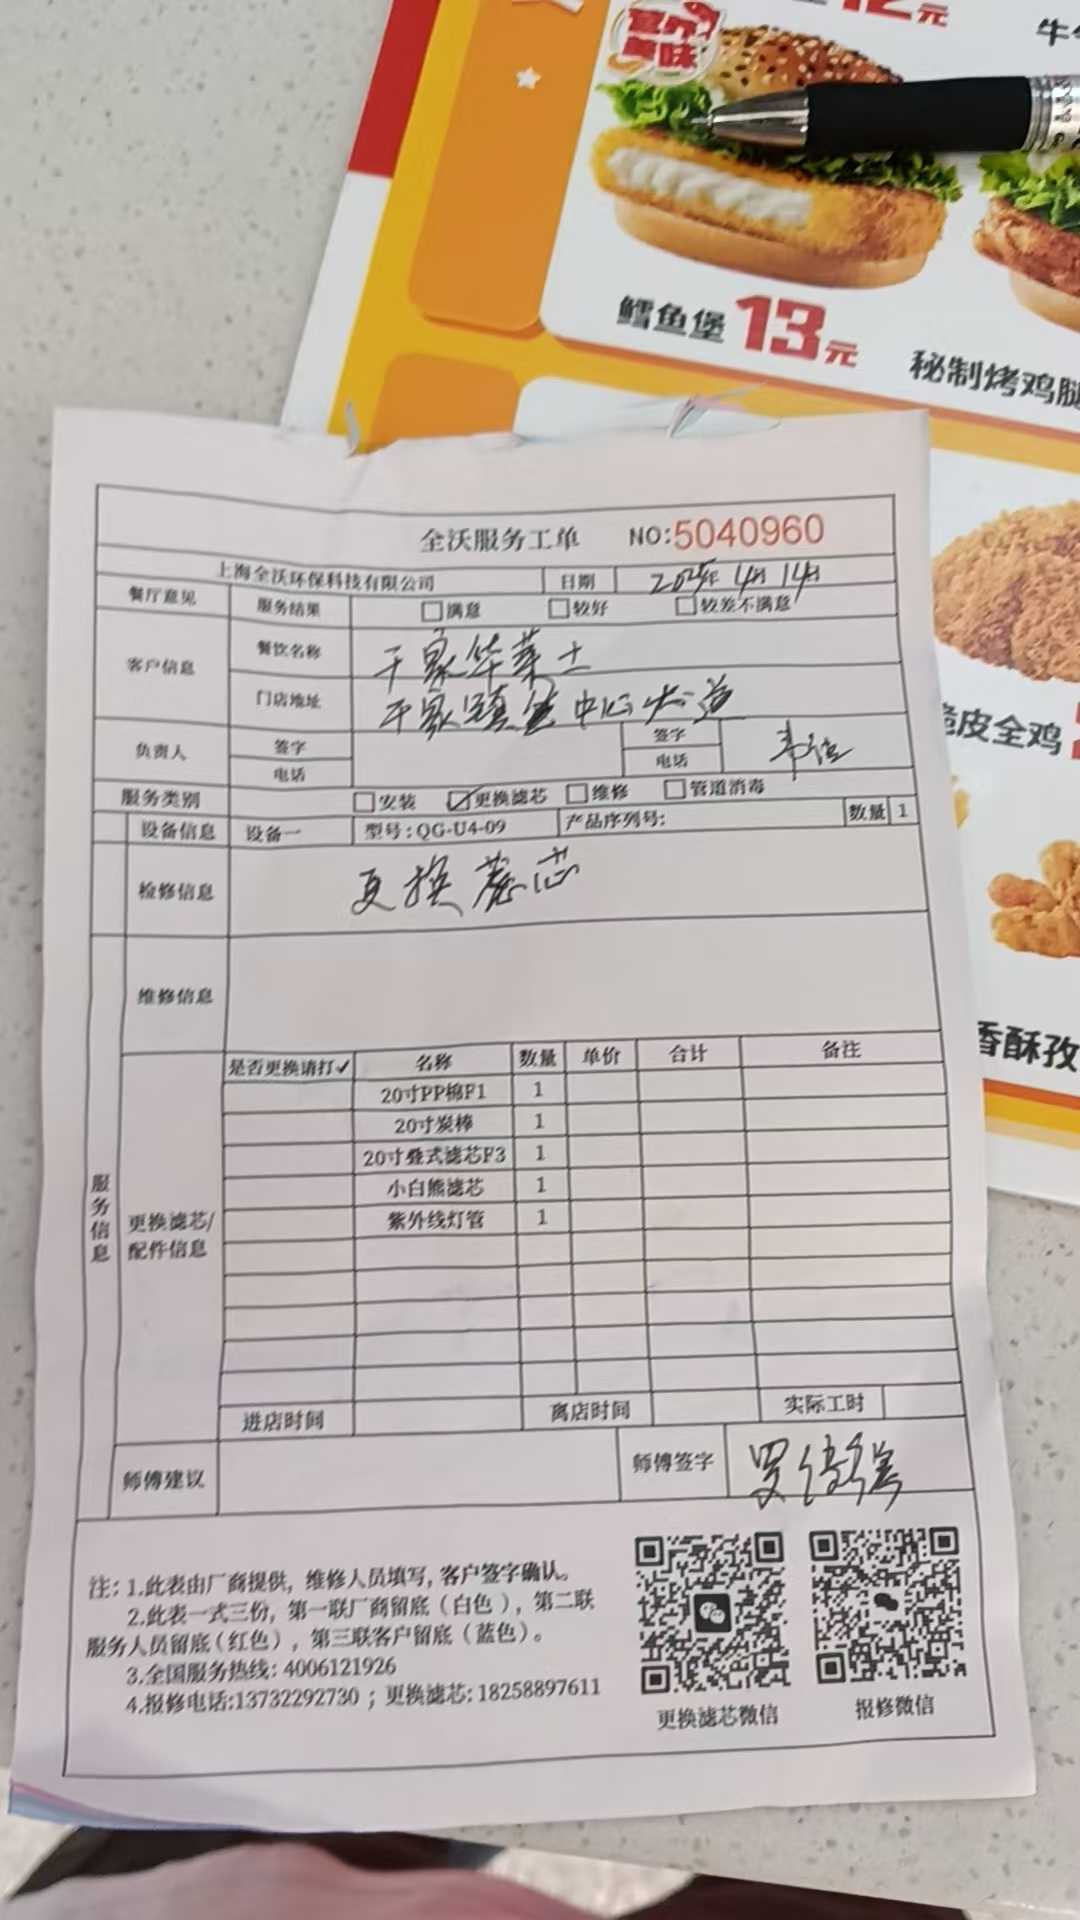 12元
牛
美味
鳕鱼堡 13元
秘制烤鸡腿
脆皮全鸡
香酥孜
全沃服务工单 NO:5040960
上海全沃环保科技有限公司 日期 2025年4月14日
餐厅意见 服务结果 满意 较好 较差不满意
客户信息 餐饮名称 于家华莱士
门店地址 于家镇 中心大道
负责人 签字 签字
电话 电话
服务类别 安装 更换滤芯 维修 管道消毒
设备信息 设备一 型号:QG-U4-09 产品序列号: 数量 1
检修信息 更换滤芯
维修信息
服务信息
更换滤芯/配件信息
是否更换请打✓ 名称 数量 单价 合计 备注
20寸PP棉F1 1
20寸炭棒 1
20寸叠式滤芯F3 1
小白熊滤芯 1
紫外线灯管 1
进店时间 离店时间 实际工时
师傅建议 师傅签字 罗
注: 1.此表由厂商提供, 维修人员填写, 客户签字确认。
2.此表一式三份, 第一联厂商留底(白色), 第二联
服务人员留底(红色), 第三联客户留底(蓝色)。
3.全国服务热线: 4006121926
4.报修电话:13732292730 ; 更换滤芯: 18258897611
更换滤芯微信 报修微信